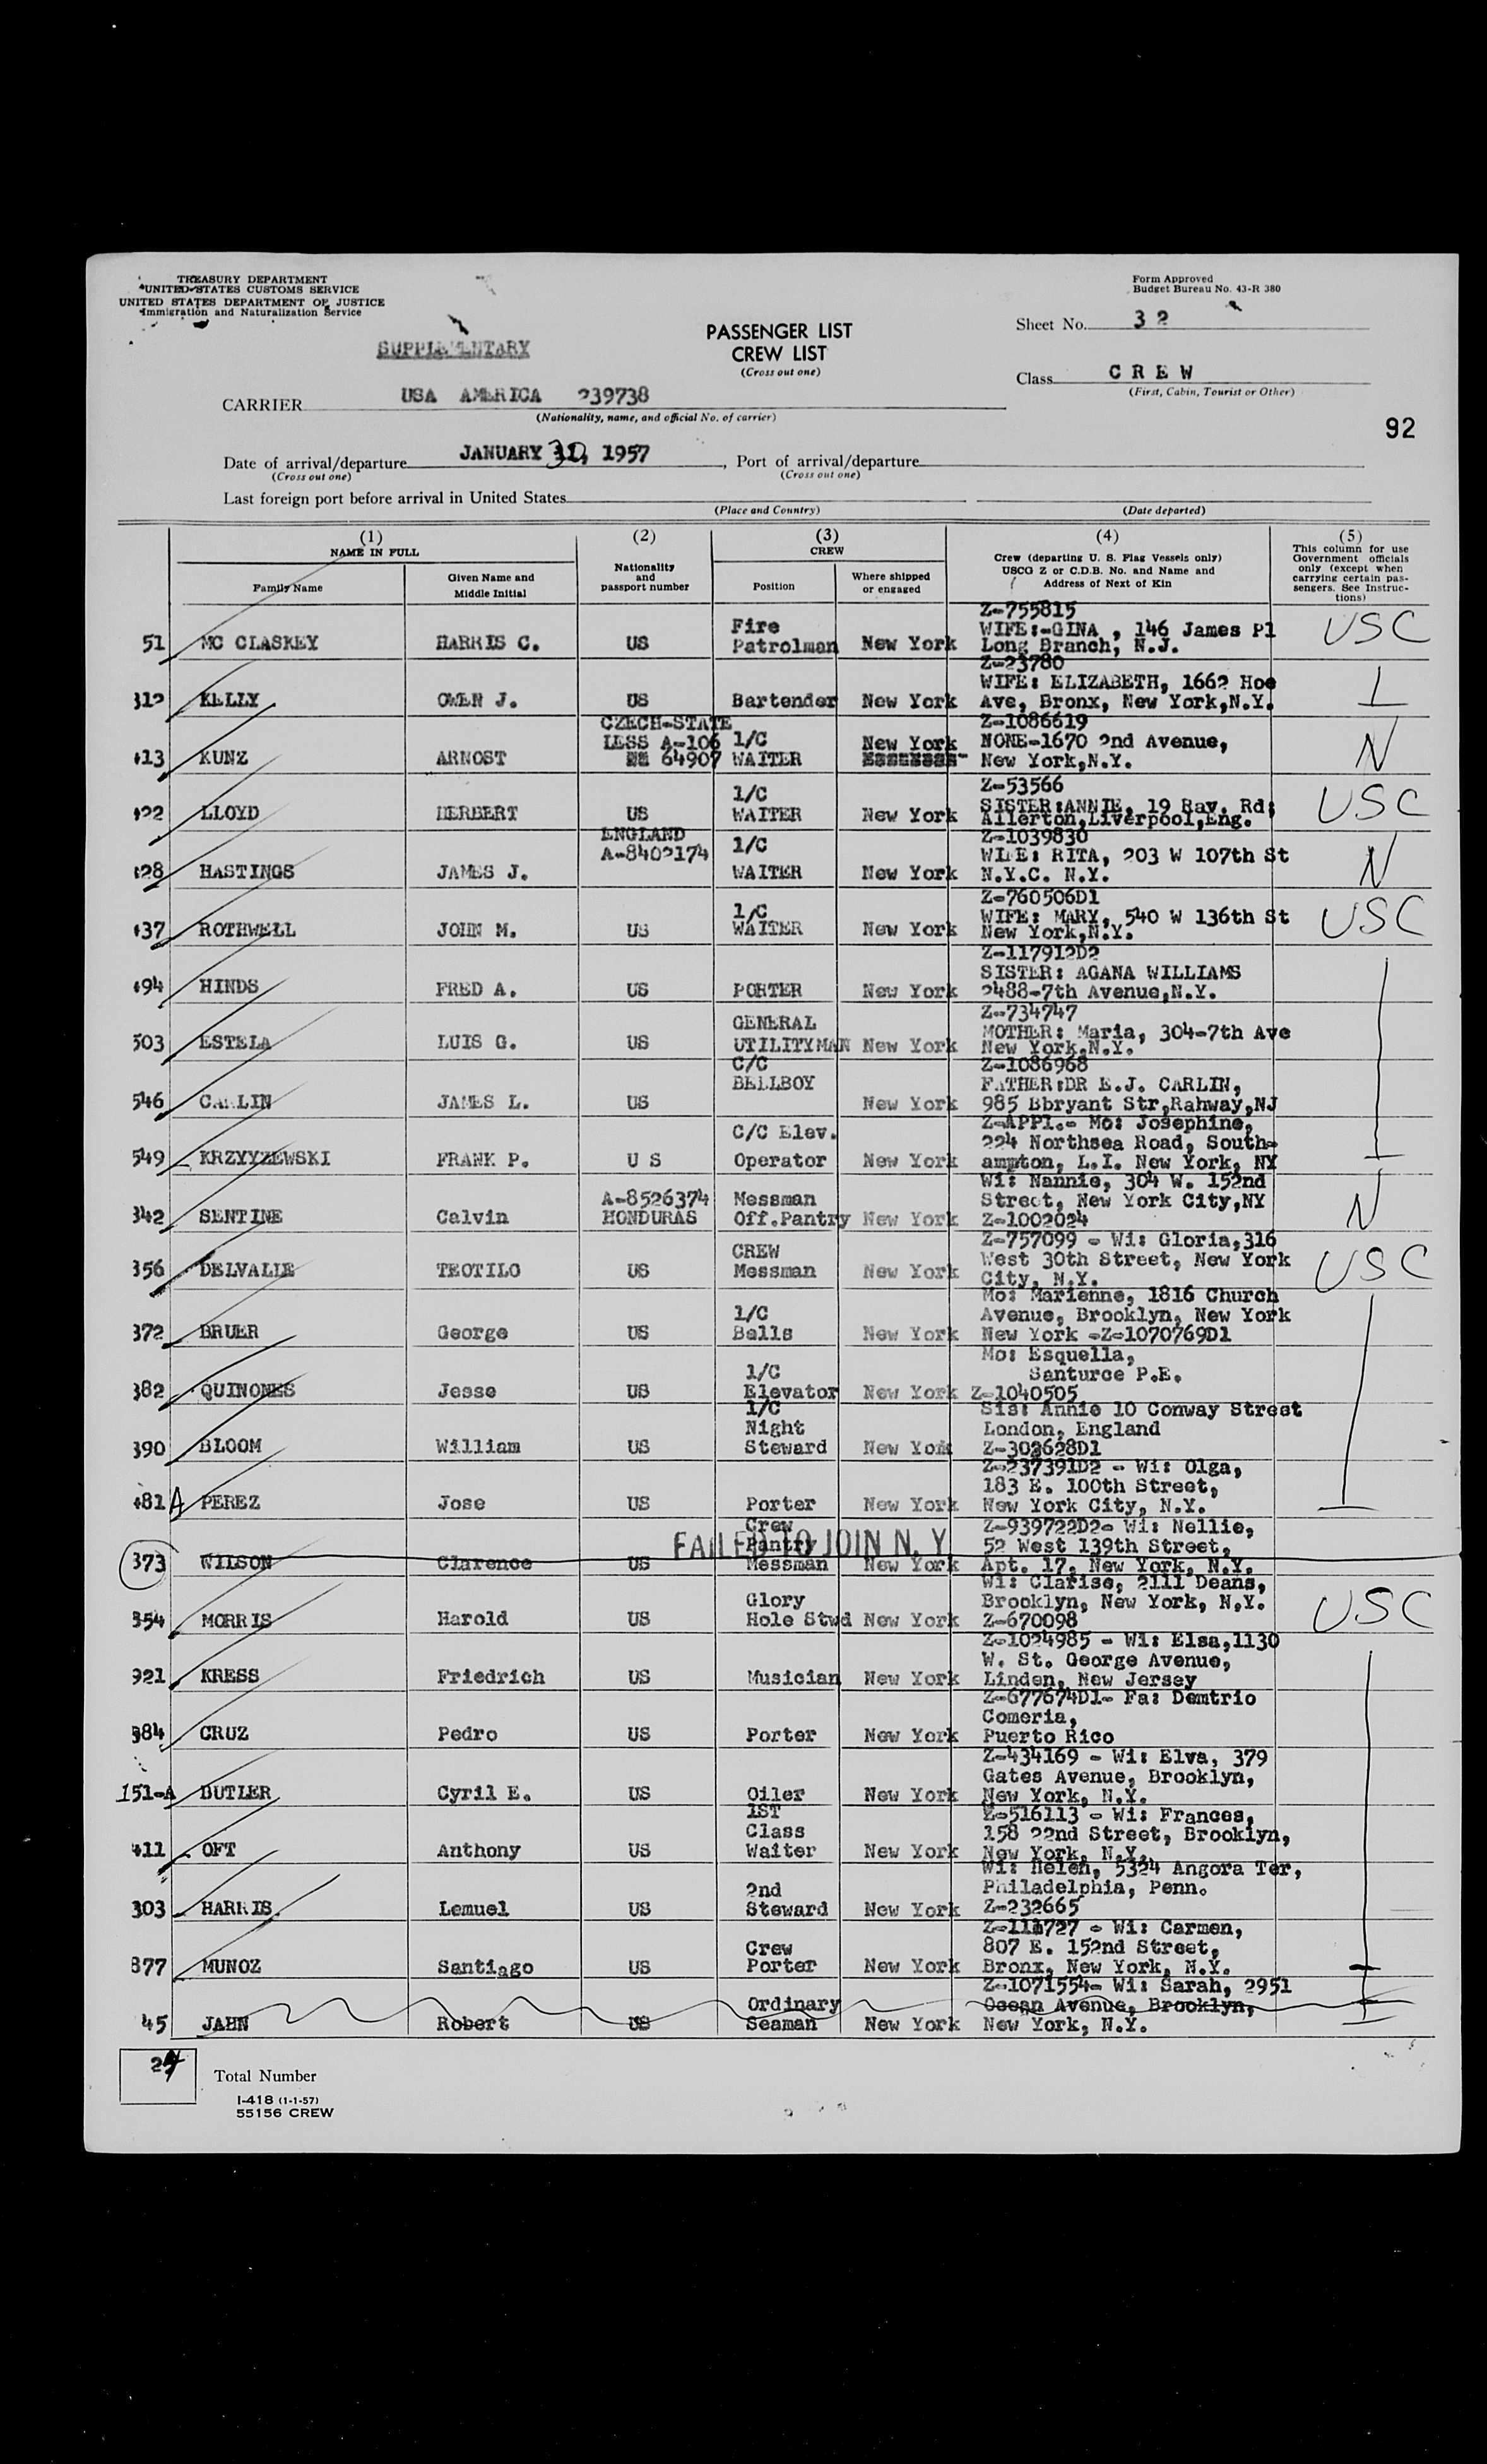 TREASURY DEPARTMENT
UNITED STATES CUSTOMS SERVICE
UNITED STATES DEPARTMENT OF JUSTICE
Immigration and Naturalization Service
Form Approved
Budget Bureau No. 43-R 380
SUPPLEMENTARY
PASSENGER LIST
CREW LIST
(Cross out one)
Sheet No. 32
Class CREW
(First, Cabin, Tourist or Other)
CARRIER USA AMERICA 239738
(Nationality, name, and official No. of carrier)
92
Date of arrival/departure JANUARY 30, 1957, Port of arrival/departure
(Cross out one) (Cross out one)
Last foreign port before arrival in United States
(Place and Country) (Date departed)
(1) (2) (3) (4) (5)
NAME IN FULL
Family Name
Given Name and
Middle Initial
Nationality
and
passport number
CREW
Position
Where shipped
or engaged
Crew (departing U. S. Flag Vessels only)
USCG Z or C.D.B. No. and Name and
Address of Next of Kin
This column for use
Government officials
only (except when
carrying certain pas-
sengers. See Instruc-
tions)
Z-755815
Fire WIFE:-GINA , 146 James Pl USC
51 MC CLASKEY HARRIS C. US Patrolman New York Long Branch, N.J.
Z-23780
WIFE: ELIZABETH, 1662 Hoe
312 KELLY OWEN J. US Bartender New York Ave, Bronx, New York,N.Y.
CZECH-STATE Z-1086619
LESS A-106 1/C New York NONE-1670 2nd Avenue, N
413 KUNZ ARNOST 64907 WAITER New York,N.Y.
Z-53566
1/C SISTER:ANNIE, 19 Rav. Rd; USC
422 LLOYD HERBERT US WAITER New York Allerton,Liverpool,Eng.
ENGLAND Z-1039830
A-8402174 1/C WIFE: RITA, 203 W 107th St N
428 HASTINGS JAMES J. WAITER New York N.Y.C. N.Y.
Z-760506D1
1/C WIFE: MARY, 540 W 136th St USC
437 ROTHWELL JOHN M. US WAITER New York New York,N.Y.
Z-117912D2
SISTER: AGANA WILLIAMS
494 HINDS FRED A. US PORTER New York 2488-7th Avenue,N.Y.
Z-734747
GENERAL MOTHER: Maria, 304-7th Ave
503 ESTELA LUIS G. US UTILITYMAN New York New York,N.Y.
C/C Z-1086968
BELLBOY FATHER:DR E.J. CARLIN,
546 CARLIN JAMES L. US New York 985 Bbryant Str,Rahway,NJ
Z-APPl.- Mo: Josephine,
C/C Elev. 224 Northsea Road, South-
549 KRZYYZEWSKI FRANK P. U S Operator New York ampton, L.I. New York, NY
Wi: Nannie, 304 W. 152nd
A-8526374 Messman Street, New York City,NY N
342 SENTINE Calvin HONDURAS Off.Pantry New York Z-1002024
Z-757099 - Wi: Gloria,316
CREW West 30th Street, New York USC
356 DELVALLE TEOTILO US Messman New York City, N.Y.
Mo: Marienne, 1816 Church
1/C Avenue, Brooklyn, New York
372 BRUER George US Bells New York New York -Z-1070769D1
Mo: Esquella,
1/C Santurce P.R.
382 QUINONES Jesse US Elevator New York Z-1040505
1/C Sis: Annie 10 Conway Street
Night London, England
390 BLOOM William US Steward New York Z-303628D1
Z-237391D2 - Wi: Olga,
183 E. 100th Street,
481 A PEREZ Jose US Porter New York New York City, N.Y.
Crew Z-939722D2- Wi: Nellie,
FAILED TO JOIN N. Y
Pantry 52 West 139th Street,
373 WILSON Clarence US Messman New York Apt. 17, New York, N.Y.
Wi: Clarise, 2111 Deans,
Glory Brooklyn, New York, N.Y. USC
354 MORRIS Harold US Hole Stwd New York Z-670098
Z-1024985 - Wi: Elsa,1130
W. St. George Avenue,
921 KRESS Friedrich US Musician New York Linden, New Jersey
Z-677674D1- Fa: Demtrio
Comeria,
984 CRUZ Pedro US Porter New York Puerto Rico
Z-434169 - Wi: Elva, 379
Gates Avenue, Brooklyn,
151-A BUTLER Cyril E. US Oiler New York New York, N.Y.
1ST Z-516113 - Wi: Frances,
Class 158 22nd Street, Brooklyn,
411 OFT Anthony US Waiter New York New York, N.Y.
Wi: Helen, 5324 Angora Ter,
2nd Philadelphia, Penn.
303 HARRIS Lemuel US Steward New York Z-232665
Z-111727 - Wi: Carmen,
Crew 807 E. 152nd Street,
877 MUNOZ Santiago US Porter New York Bronx, New York, N.Y.
Z-1071554- Wi: Sarah, 2951
Ordinary Ocean Avenue, Brooklyn,
45 JAHN Robert US Seaman New York New York, N.Y.
24 Total Number
I-418 (1-1-57)
55156 CREW